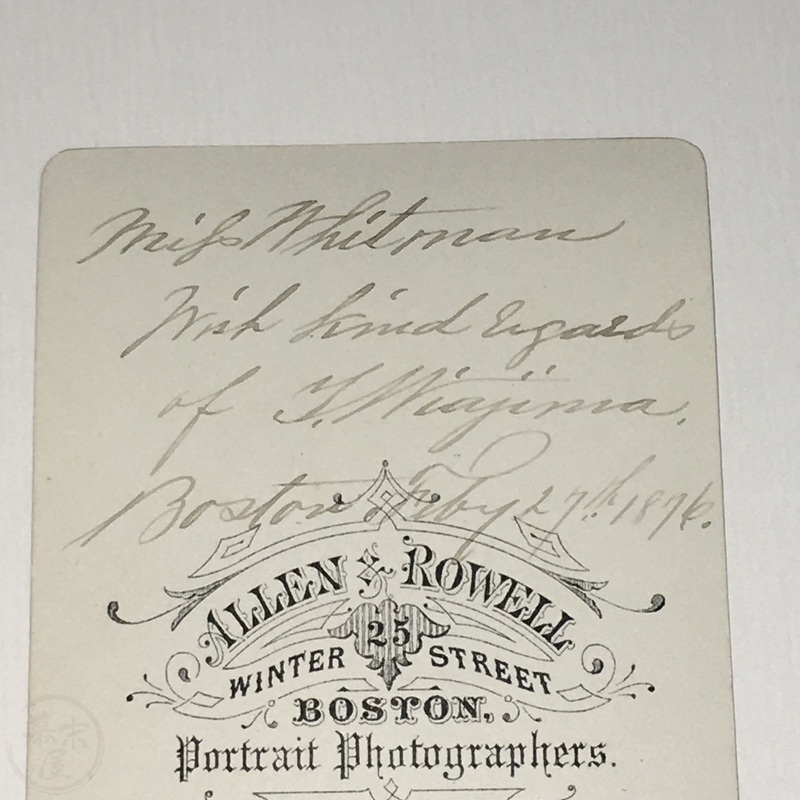 Miss Whitman
With kind regards
of T. Miajima.
Boston Feby 27th 1876.
ALLEN & ROWELL
25
WINTER STREET
BOSTON.
Portrait Photographers.
幕末屋